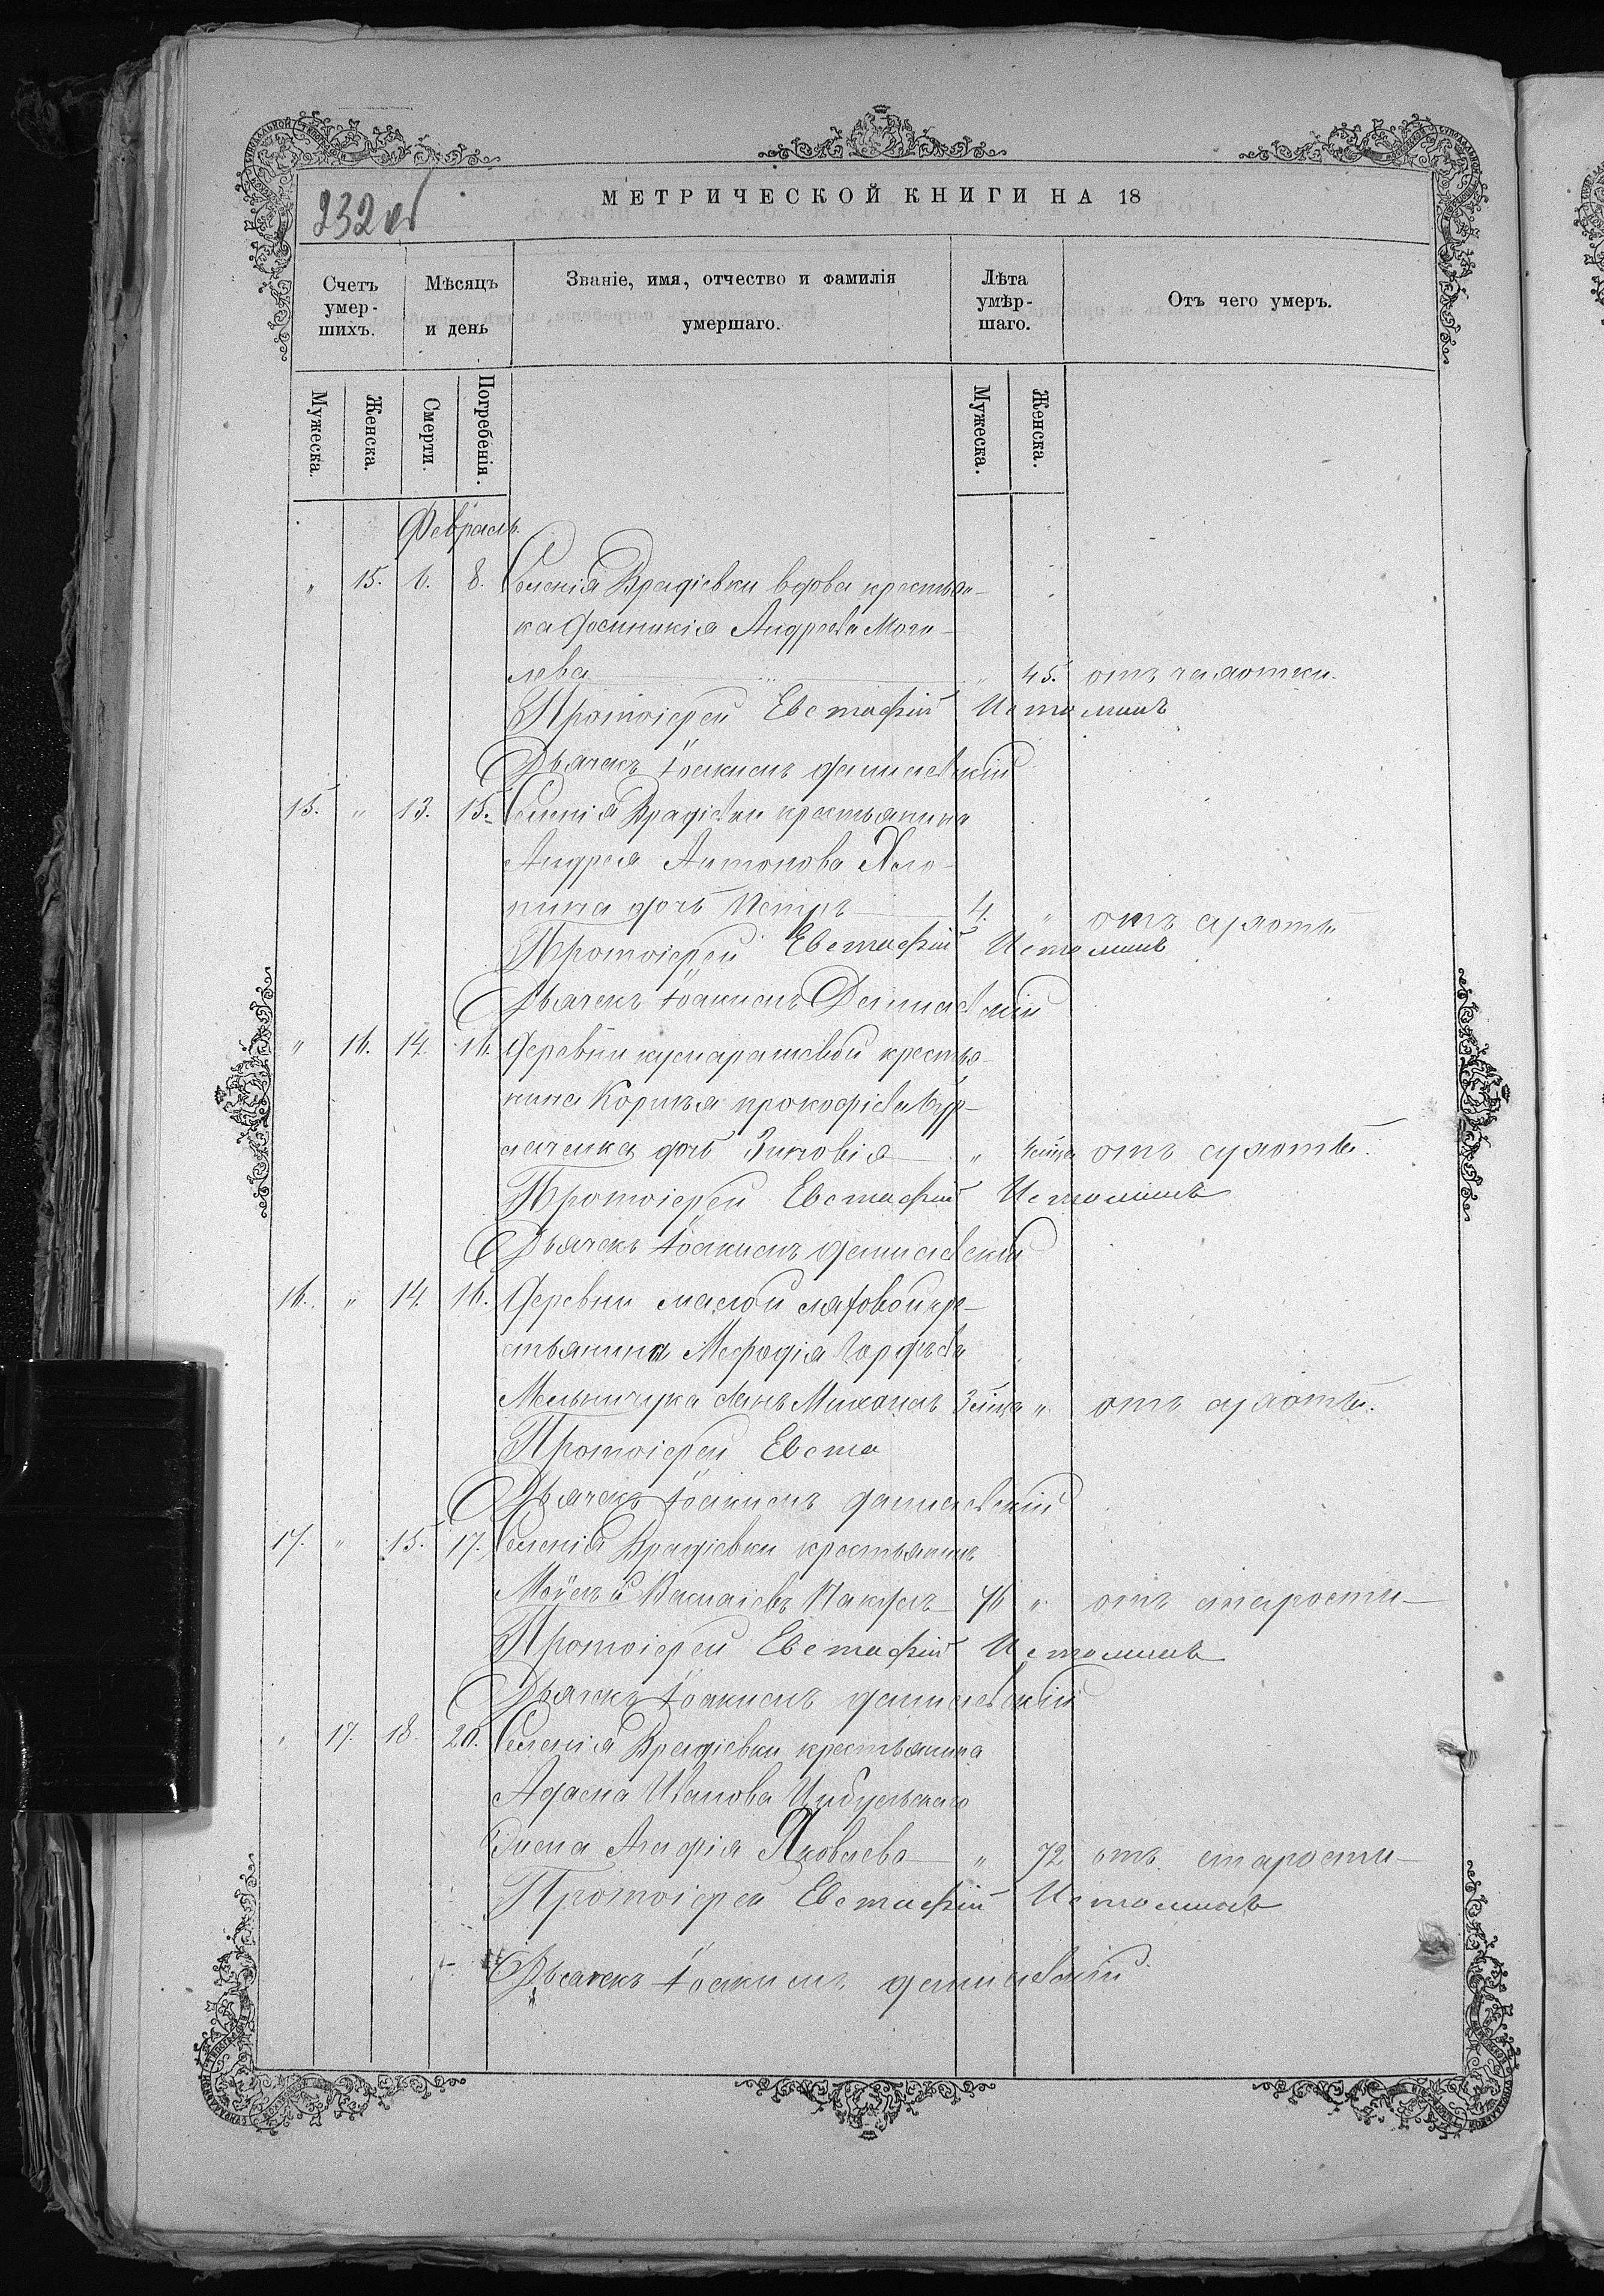 232 об
МЕТРИЧЕСКОЙ КНИГИ НА 18
Счетъ умер-шихъ.
Мѣсяцъ и день
Званіе, имя, отчество и фамилія умершаго.
Лѣта умѣр-шаго.
Отъ чего умеръ.
Мужеска. Женска. Смерти. Погребенія. Мужеска. Женска.
Февраль.
" 15. 6. 8. Селенія Врадіевки вдова крестьян-
ка Андреева Моги-
лева " 45. отъ чахотки.
Протоіерей Евстафій Истоминъ
Дьячекъ Іоакимъ
15. " 13. 15. Селенія Врадіевки крестьянина
Андрея Антонова Хло-
пина Петръ 4. " отъ сухоты
Протоіерей Евстафій Истоминъ
Дьячекъ Іоакимъ
" 16. 14. 16. Деревни крестья-
нина Корнея Прокофіева Бур-
лаченка дочь Зиновія " отъ сухоты.
Протоіерей Евстафій Истоминъ
Дьячекъ Іоакимъ
16. " 14. 16. Деревни малой кре-
стьянина Мефодія Гордѣева
Мельничука сынъ Михаилъ " отъ сухоты.
Протоіерей Евста
Дьячекъ Іоакимъ
17. " 15. 17. Селенія Врадіевки крестьянинъ
Моѵсей 76 " отъ старости
Протоіерей Евстафій Истоминъ
Дьячекъ Іоакимъ
" 17. 18. 20. Селенія Врадіевки крестьянина
Адама Иванова Цибульскаго
жена Агафія Яковлева " 72 отъ старости
Протоіерей Евстафій Истоминъ
Дьячекъ Іоакимъ